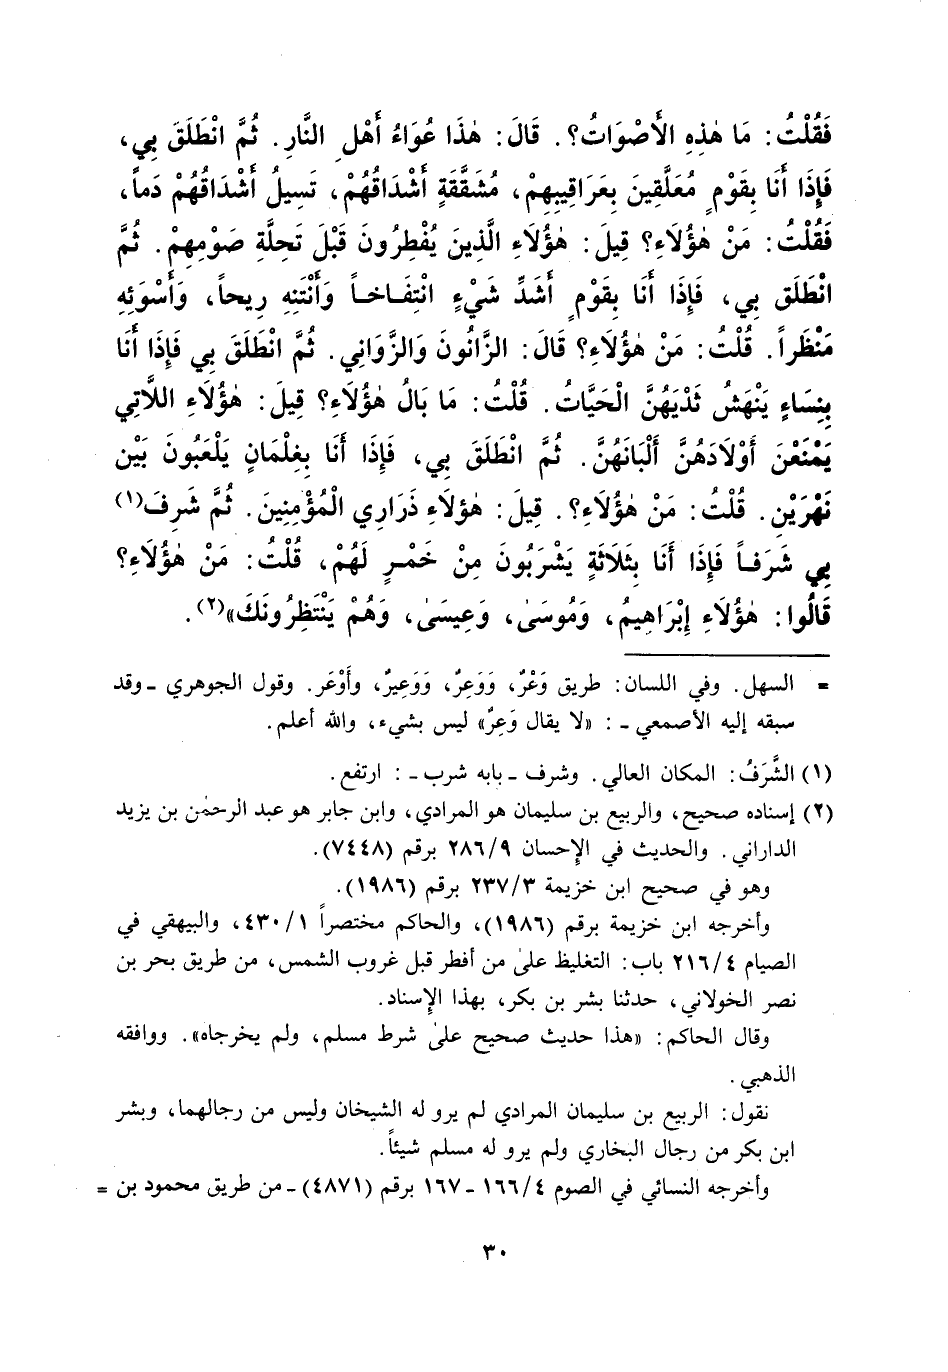 فَقُلْتُ: مَا هٰذِهِ الأَصْوَاتُ؟. قَالَ: هٰذَا عُوَاءُ أَهْلِ النَّارِ. ثُمَّ انْطَلَقَ بِي،
فَإِذَا أَنَا بِقَوْمٍ مُعَلَّقِينَ بِعَرَاقِيبِهِمْ، مُشَقَّقَةٍ أَشْدَاقُهُمْ، تَسِيلُ أَشْدَاقُهُمْ دَماً،
فَقُلْتُ: مَنْ هٰؤُلَاءِ؟ قِيلَ: هٰؤُلَاءِ الَّذِينَ يُفْطِرُونَ قَبْلَ تَحِلَّةِ صَوْمِهِمْ. ثُمَّ
انْطَلَقَ بِي، فَإِذَا أَنَا بِقَوْمٍ أَشَدِّ شَيْءٍ انْتِفَاخاً وَأَنْتَنِهِ رِيحاً، وَأَسْوَئِهِ
مَنْظَراً. قُلْتُ: مَنْ هٰؤُلَاءِ؟ قَالَ: الزَّانُونَ وَالزَّوَانِي. ثُمَّ انْطَلَقَ بِي فَإِذَا أَنَا
بِنِسَاءٍ يَنْهَشُ ثَدْيَهُنَّ الْحَيَّاتُ. قُلْتُ: مَا بَالُ هٰؤُلَاءِ؟ قِيلَ: هٰؤُلَاءِ اللَّاتِي
يَمْنَعْنَ أَوْلَادَهُنَّ أَلْبَانَهُنَّ. ثُمَّ انْطَلَقَ بِي، فَإِذَا أَنَا بِغِلْمَانٍ يَلْعَبُونَ بَيْنَ
نَهْرَيْنِ. قُلْتُ: مَنْ هٰؤُلَاءِ؟. قِيلَ: هٰؤلَاءِ ذَرَارِي الْمُؤْمِنِينَ. ثُمَّ شَرِفَ(١)
بِي شَرَفاً فَإِذَا أَنَا بِثَلَاثَةٍ يَشْرَبُونَ مِنْ خَمْرٍ لَهُمْ، قُلْتُ: مَنْ هٰؤُلَاءِ؟
قَالُوا: هٰؤُلَاءِ إِبْرَاهِيمُ، وَمُوسَىٰ، وَعِيسَىٰ، وَهُمْ يَنْتَظِرُونَكَ»(٢).
= السهل. وفي اللسان: طريق وَعْرٌ، وَوَعِرٌ، وَوَعِيرٌ، وأَوْعَر. وقول الجوهري ـ وقد
سبقه إليه الأصمعي ـ: «لا يقال وَعِرٌ» ليس بشيء، والله أعلم.
(١) الشَّرَفُ: المكان العالي. وشرف ـ بابه شرب ـ: ارتفع.
(٢) إسناده صحيح، والربيع بن سليمان هو المرادي، وابن جابر هو عبد الرحمٰن بن يزيد
الداراني. والحديث في الإحسان ٢٨٦/٩ برقم (٧٤٤٨).
وهو في صحيح ابن خزيمة ٢٣٧/٣ برقم (١٩٨٦).
وأخرجه ابن خزيمة برقم (١٩٨٦)، والحاكم مختصراً ٤٣٠/١، والبيهقي في
الصيام ٢١٦/٤ باب: التغليظ علىٰ من أفطر قبل غروب الشمس، من طريق بحر بن
نصر الخولاني، حدثنا بشر بن بكر، بهذا الإسناد.
وقال الحاكم: «هذا حديث صحيح علىٰ شرط مسلم، ولم يخرجاه». ووافقه
الذهبي.
نقول: الربيع بن سليمان المرادي لم يرو له الشيخان وليس من رجالهما، وبشر
ابن بكر من رجال البخاري ولم يرو له مسلم شيئاً.
وأخرجه النسائي في الصوم ١٦٦/٤ ـ ١٦٧ برقم (٤٨٧١) ـ من طريق محمود بن =
٣٠